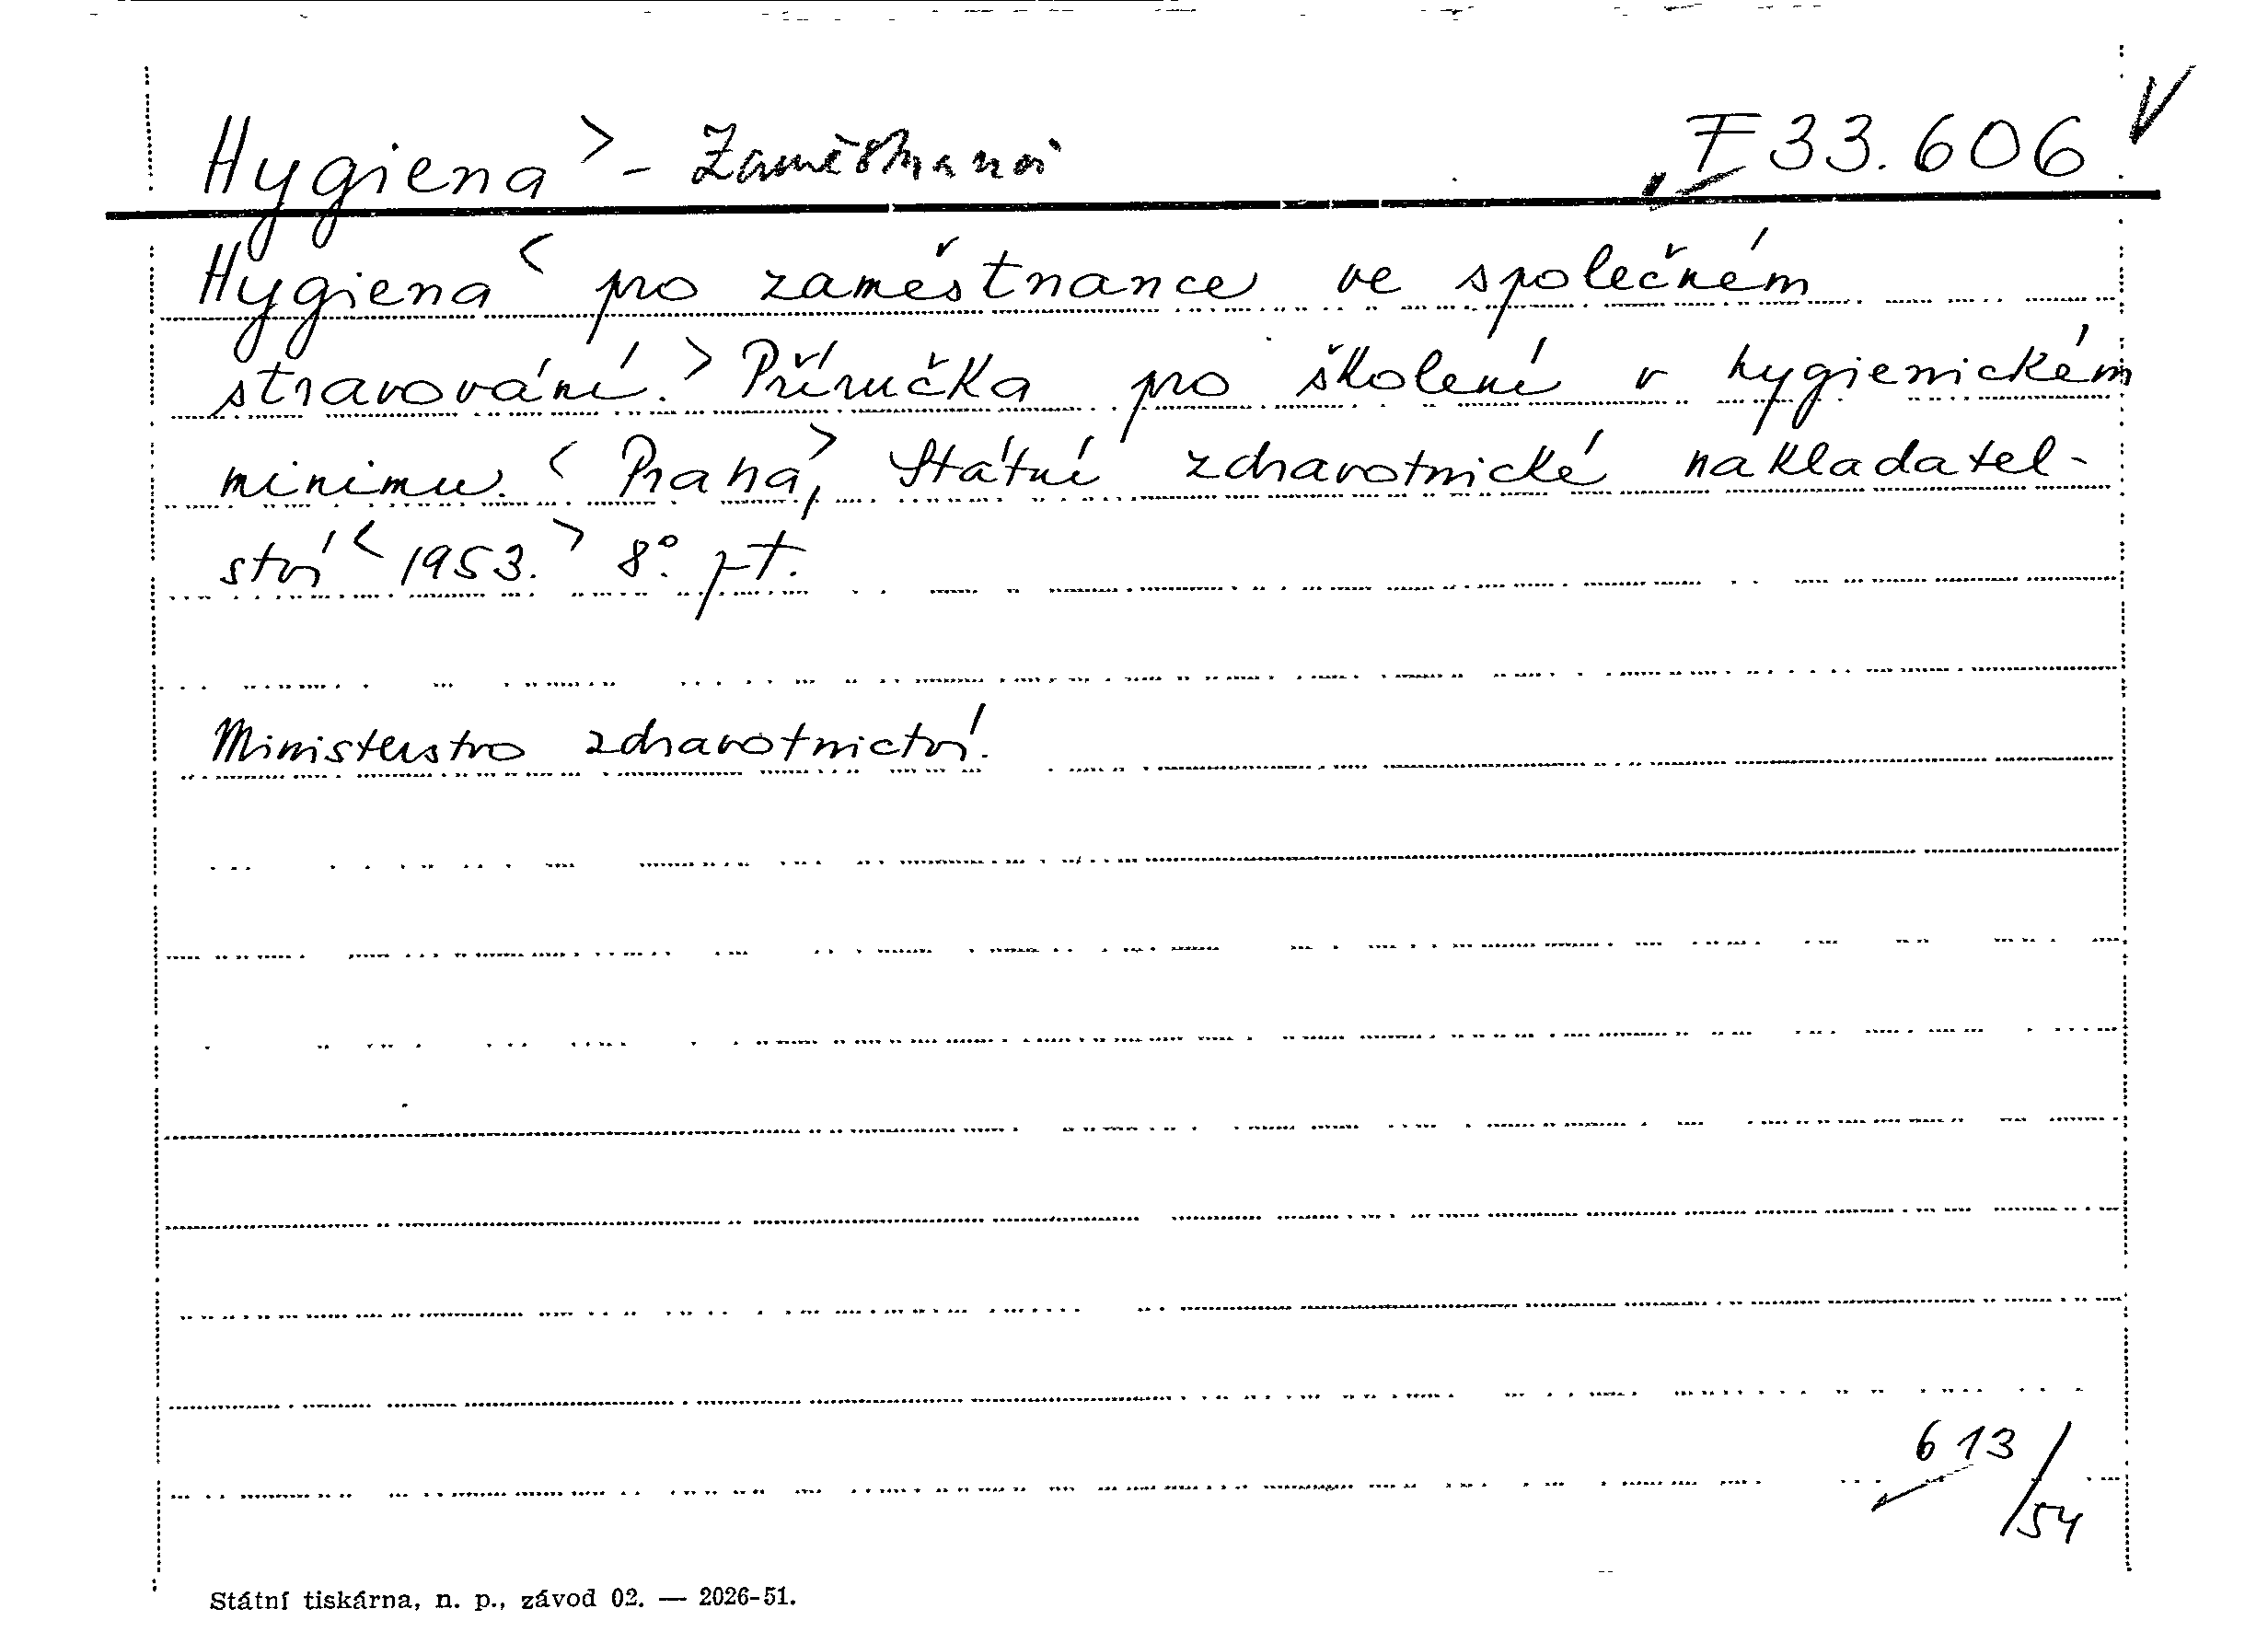 Hygiena > - Zaměstnanci F 33.606 V
Hygiena < pro zaměstnance ve společném
stravování. > Příručka pro školení v hygienickém
minimu. < Praha, > Státní zdravotnické nakladatel-
ství < 1953. > 8°.
Ministerstvo zdravotnictví.
613/54
Státní tiskárna, n. p., závod 02. — 2026-51.